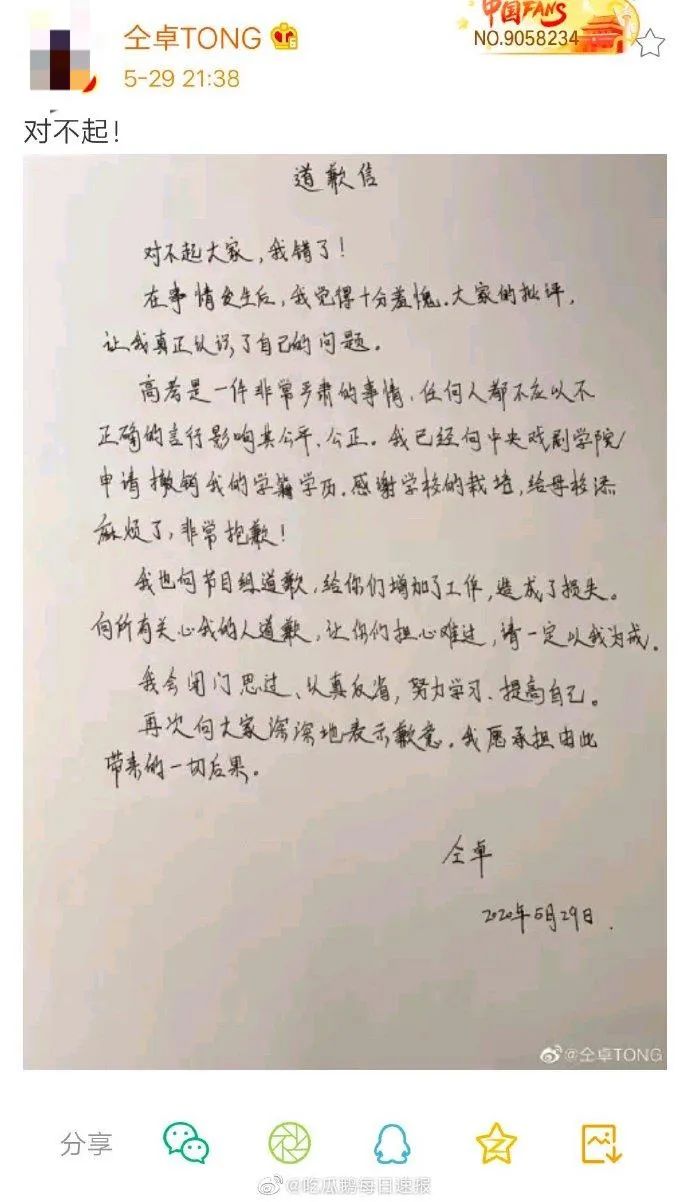 仝卓TONG
中国FANS
NO.9058234
5-29 21:38
对不起!
道歉信
对不起大家,我错了!
在事情发生后,我觉得十分羞愧.大家的批评,
让我真正认识了自己的问题。
高考是一件非常严肃的事情,任何人都不应以不
正确的言行影响其公平、公正。我已经向中央戏剧学院
申请撤销我的学籍学历.感谢学校的栽培,给母校添
麻烦了,非常抱歉!
我也向节目组道歉,给你们增加了工作,造成了损失。
向所有关心我的人道歉,让你们担心难过,请一定以我为戒.
我会闭门思过、认真反省,努力学习、提高自己。
再次向大家深深地表示歉意.我愿承担由此
带来的一切后果。
仝卓
2020年5月29日.
@仝卓TONG
分享
@吃瓜鹅每日速报